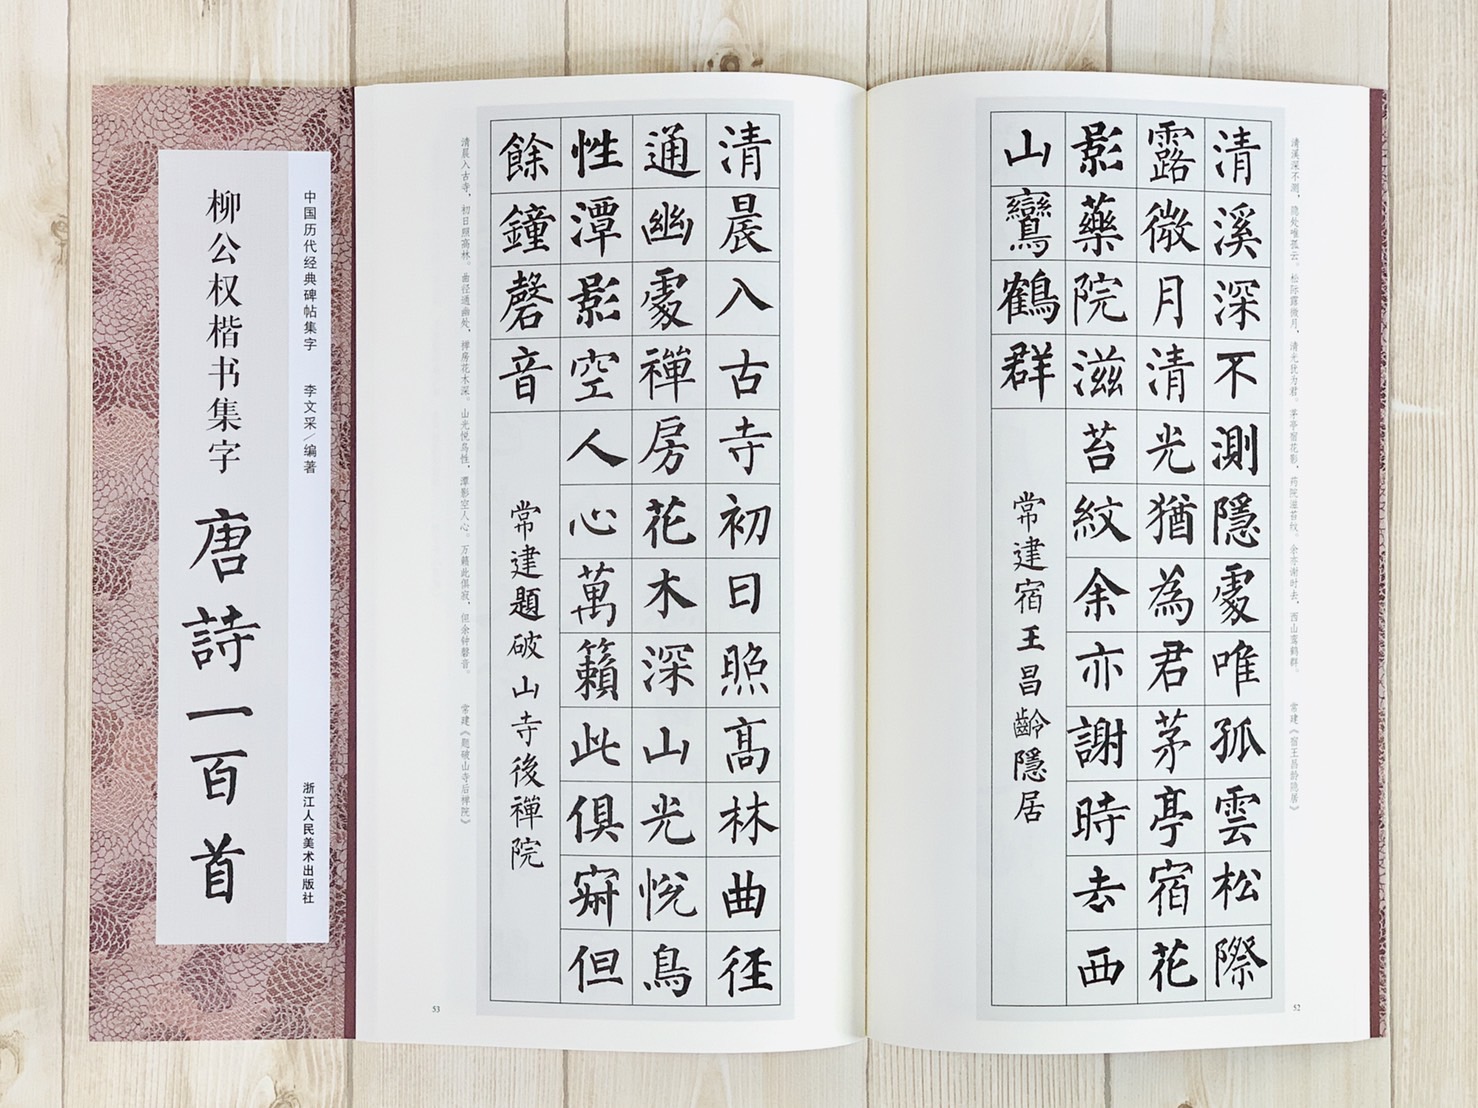 清溪深不测，隐处唯孤云。松际露微月，清光犹为君。茅亭宿花影，药院滋苔纹。余亦谢时去，西山鸾鹤群。 常建《宿王昌龄隐居》
清溪深不測隱處唯孤雲松際
露微月清光猶為君茅亭宿花
影藥院滋苔紋余亦謝時去西
山鸞鶴群
常建宿王昌齡隱居
52
清晨入古寺初日照高林曲徑
通幽處禪房花木深山光悅鳥
性潭影空人心萬籟此俱寂但
餘鐘磬音
常建題破山寺後禪院
清晨入古寺，初日照高林。曲径通幽处，禅房花木深。山光悦鸟性，潭影空人心。万籁此俱寂，但余钟磬音。 常建《题破山寺后禅院》
53
中国历代经典碑帖集字 李文采／编著 浙江人民美术出版社
柳公权楷书集字 唐詩一百首